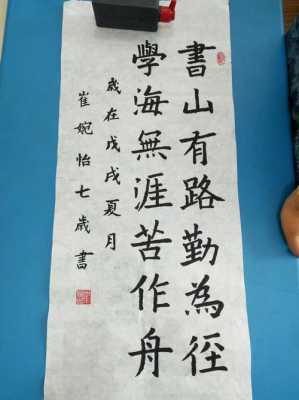 書山有路勤為徑
學海無涯苦作舟
歲在戊戌夏月
崔婉怡七歲書